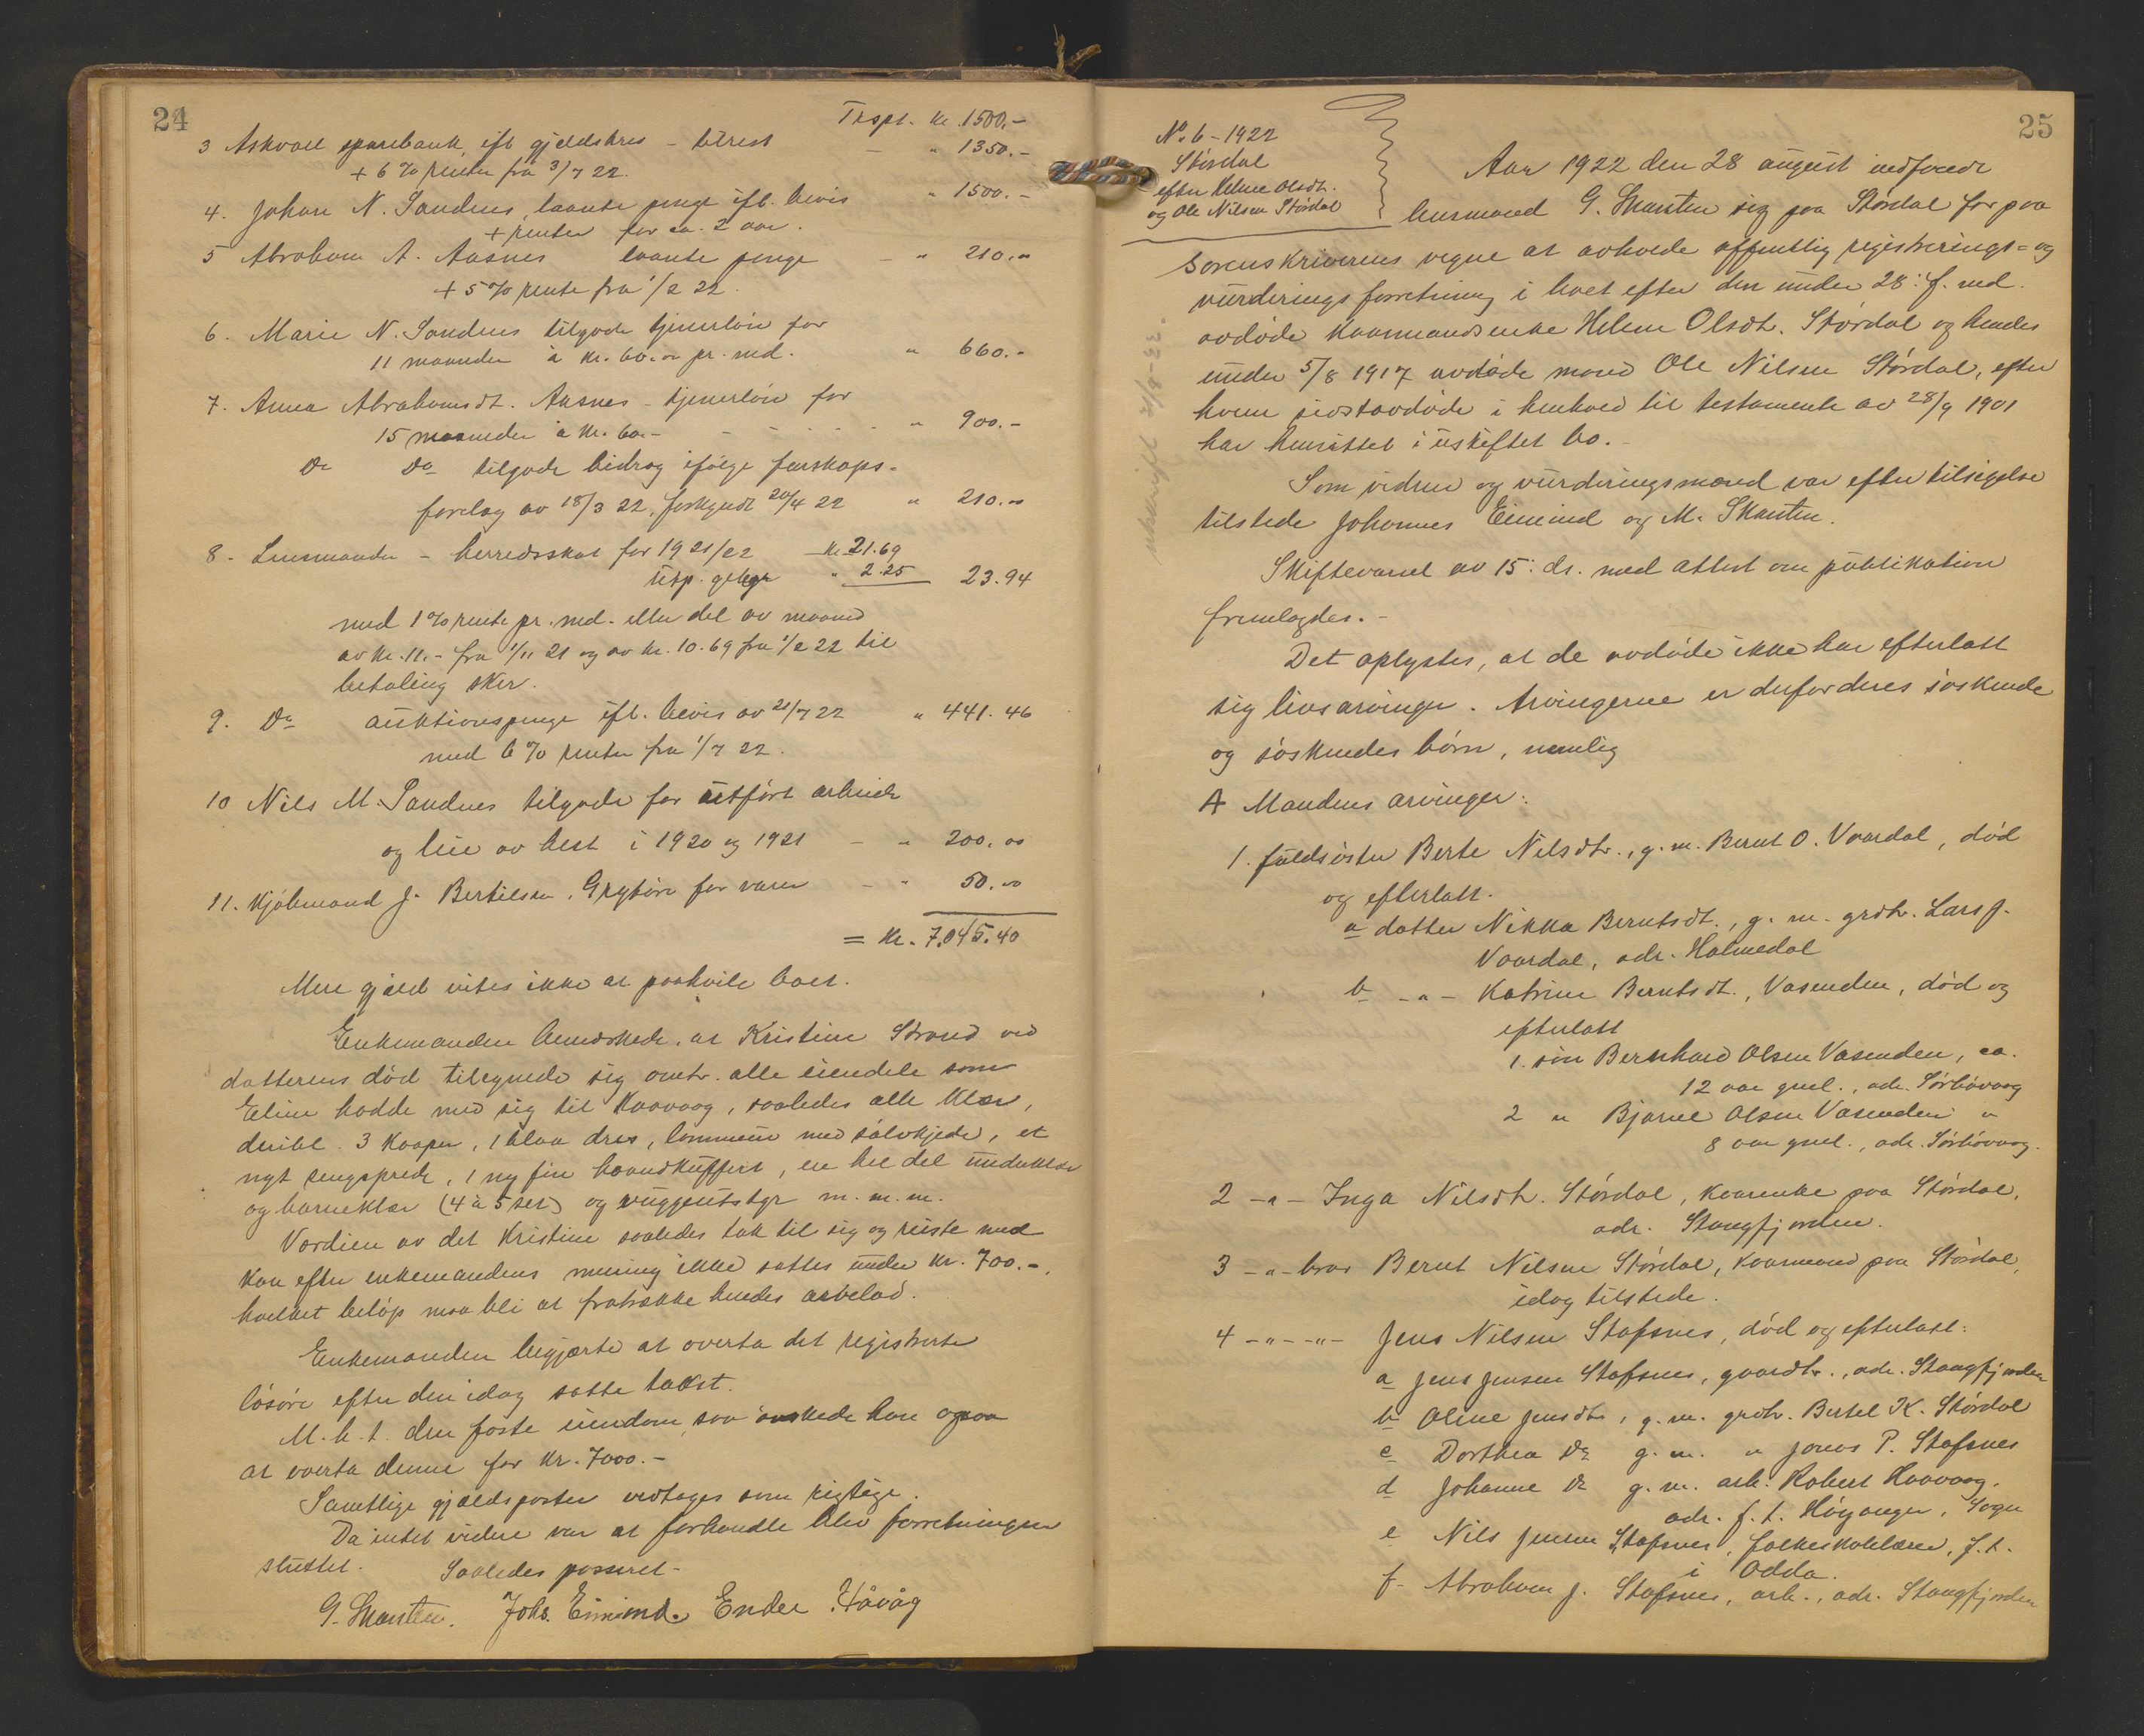 24
Trspt. kr. 1500,-
3 Askvoll sparebank ifl gjeldsbrev - tilrest - " 1350.-
+ 6 % renter fra 3/7 22.
4. Johan N. Sandnes, laante penge ifl. bevis " 1500.-
+ renter for ca. 2 aar.
5 Abraham A. Aasnes laante penge - " 210.00
+ 5 % rente fra 1/2 22.
6. Marie N. Sandnes tilgode tjenerløn for
11 maaneder à kr. 60.00 pr. md. " 660.-
7. Anna Abrahamsdt. Aasnes - tjenerløn for
15 maaneder à kr. 60.- - - - - " 900.-
Do Do tilgode bidrag ifølge farskaps-
forelæg av 18/3 22, forkyndt 20/4 22 " 210.00
8. Lensmanden - herredsskat for 1921/22 kr 21.69
utp. gebyr " 2.25 23.94
med 1 % rente pr. md. eller del av maaned
av kr. 11.- fra 1/11 21 og av kr. 10.69 fra 1/2 22 til
betaling sker.
9. Do auktionspenge ifl. bevis av 21/7 22 " 441.46
med 6 % renter fra 1/7 22.
10 Nils M. Sandnes tilgode for utført arbeide
og leie av hest i 1920 og 1921 - " 200.00
11. Kjøbmand J. Bertilsen, Grytøir for varer - " 50.00
= kr. 7.045.40
Mere gjæld vites ikke at paahvile boet.
Enkemanden bemerkede, at Kristine Strand ved
datterens død tilegnede sig omtr. alle eiendele som
Eline hadde med sig til Haavaag, saaledes alle klær,
deribl. 3 kaaper, 1 blaa dres, lommeur med sølvkjede, et
nyt sengsprede, 1 ny fin haandkuffert, en hel del underklær
og barneklær (4 à 5 set) og vuggeutstyr m. m. m.
Værdien av det Kristine saaledes tok til sig og reiste med
kan efter enkemandens mening ikke sættes under kr. 700.-,
hvilket beløp maa bli at fratrække hendes arvelod.
Enkemanden begjærte at overta det registrerte
løsøre efter den idag satte takst.
M.h.t. den faste eiendom, saa ønskede han ogsaa
at overta denne for kr. 7000.-
Samtlige gjældsposter vedtages som rigtige.
Da intet videre var at forhandle blev forretningen
sluttet. Saaledes passeret-
G. Skarsten. Johs. Eimind. Ender Håvåg
25
No. 6 - 1922
Stördal
efter Helene Olsdt.
og Ole Nilsen Stördal
utskrift 31/8-22.
Aar 1922 den 28 august indfandt
lensmand G. Skarsten sig paa Stördal for paa
sorenskriverens vegne at avholde offentlig registrerings- og
vurderings forretning i boet efter den under 28. f. md.
avdøde kaarmandsenke Helene Olsdt. Stördal og hendes
under 5/8 1917 avdøde mand Ole Nilsen Stördal, efter
hvem sidstavdøde i henhold til testamente av 28/9 1901
har hensittet i uskiftet bo.-
Som vidner og vurderingsmænd var efter tilsigelse
tilstede Johannes Eimind og M. Skarsten.
Skiftevarsel av 15. ds. med attest om publikation
fremlagdes.-
Det oplystes, at de avdøde ikke har efterlatt
sig livsarvinger. Arvingerne er derfor deres søskende
og søskendes børn, nemlig
A Mandens arvinger:
1. fuldsøster Berte Nilsdtr., g. m. Bernt O. Vaardal, død
og efterlatt.
a datter Nikka Berntsdt., g. m. grdbr. Lars J.
Vaardal, adr. Holmedal
b -"- Katrine Berntsdt., Vasenden, død og
efterlatt
1. søn Bernhard Olsen Vasenden, ca.
12 aar gml., adr. Sørbövaag
2 " Bjarne Olsen Vasenden "
8 aar gml., adr. Sørbövaag.
2 -"- Inga Nilsdtr. Stördal, kaarenke paa Stördal,
adr. Stangfjorden.
3 -"- bror Bernt Nilsen Stördal, kaarmand paa Stördal,
idag tilstede.
4 -"- -"- Jens Nilsen Stafsnes, død og efterlatt:
a Jens Jensen Stafsnes, gaardbr., adr. Stangfjorden
b Oline Jensdtr, g. m. grdbr. Bertel K. Stördal
c Dorthea Do g. m. " Jonas P. Stafsnes
d Johanne Do g. m. arb. Robert Haavaag,
adr. f. t. Høyanger, Sogn
e Nils Jensen Stafsnes, folkeskolelærer, f. t.
i Odda.
f. Abraham J. Stafsnes, arb., adr. Stangfjorden